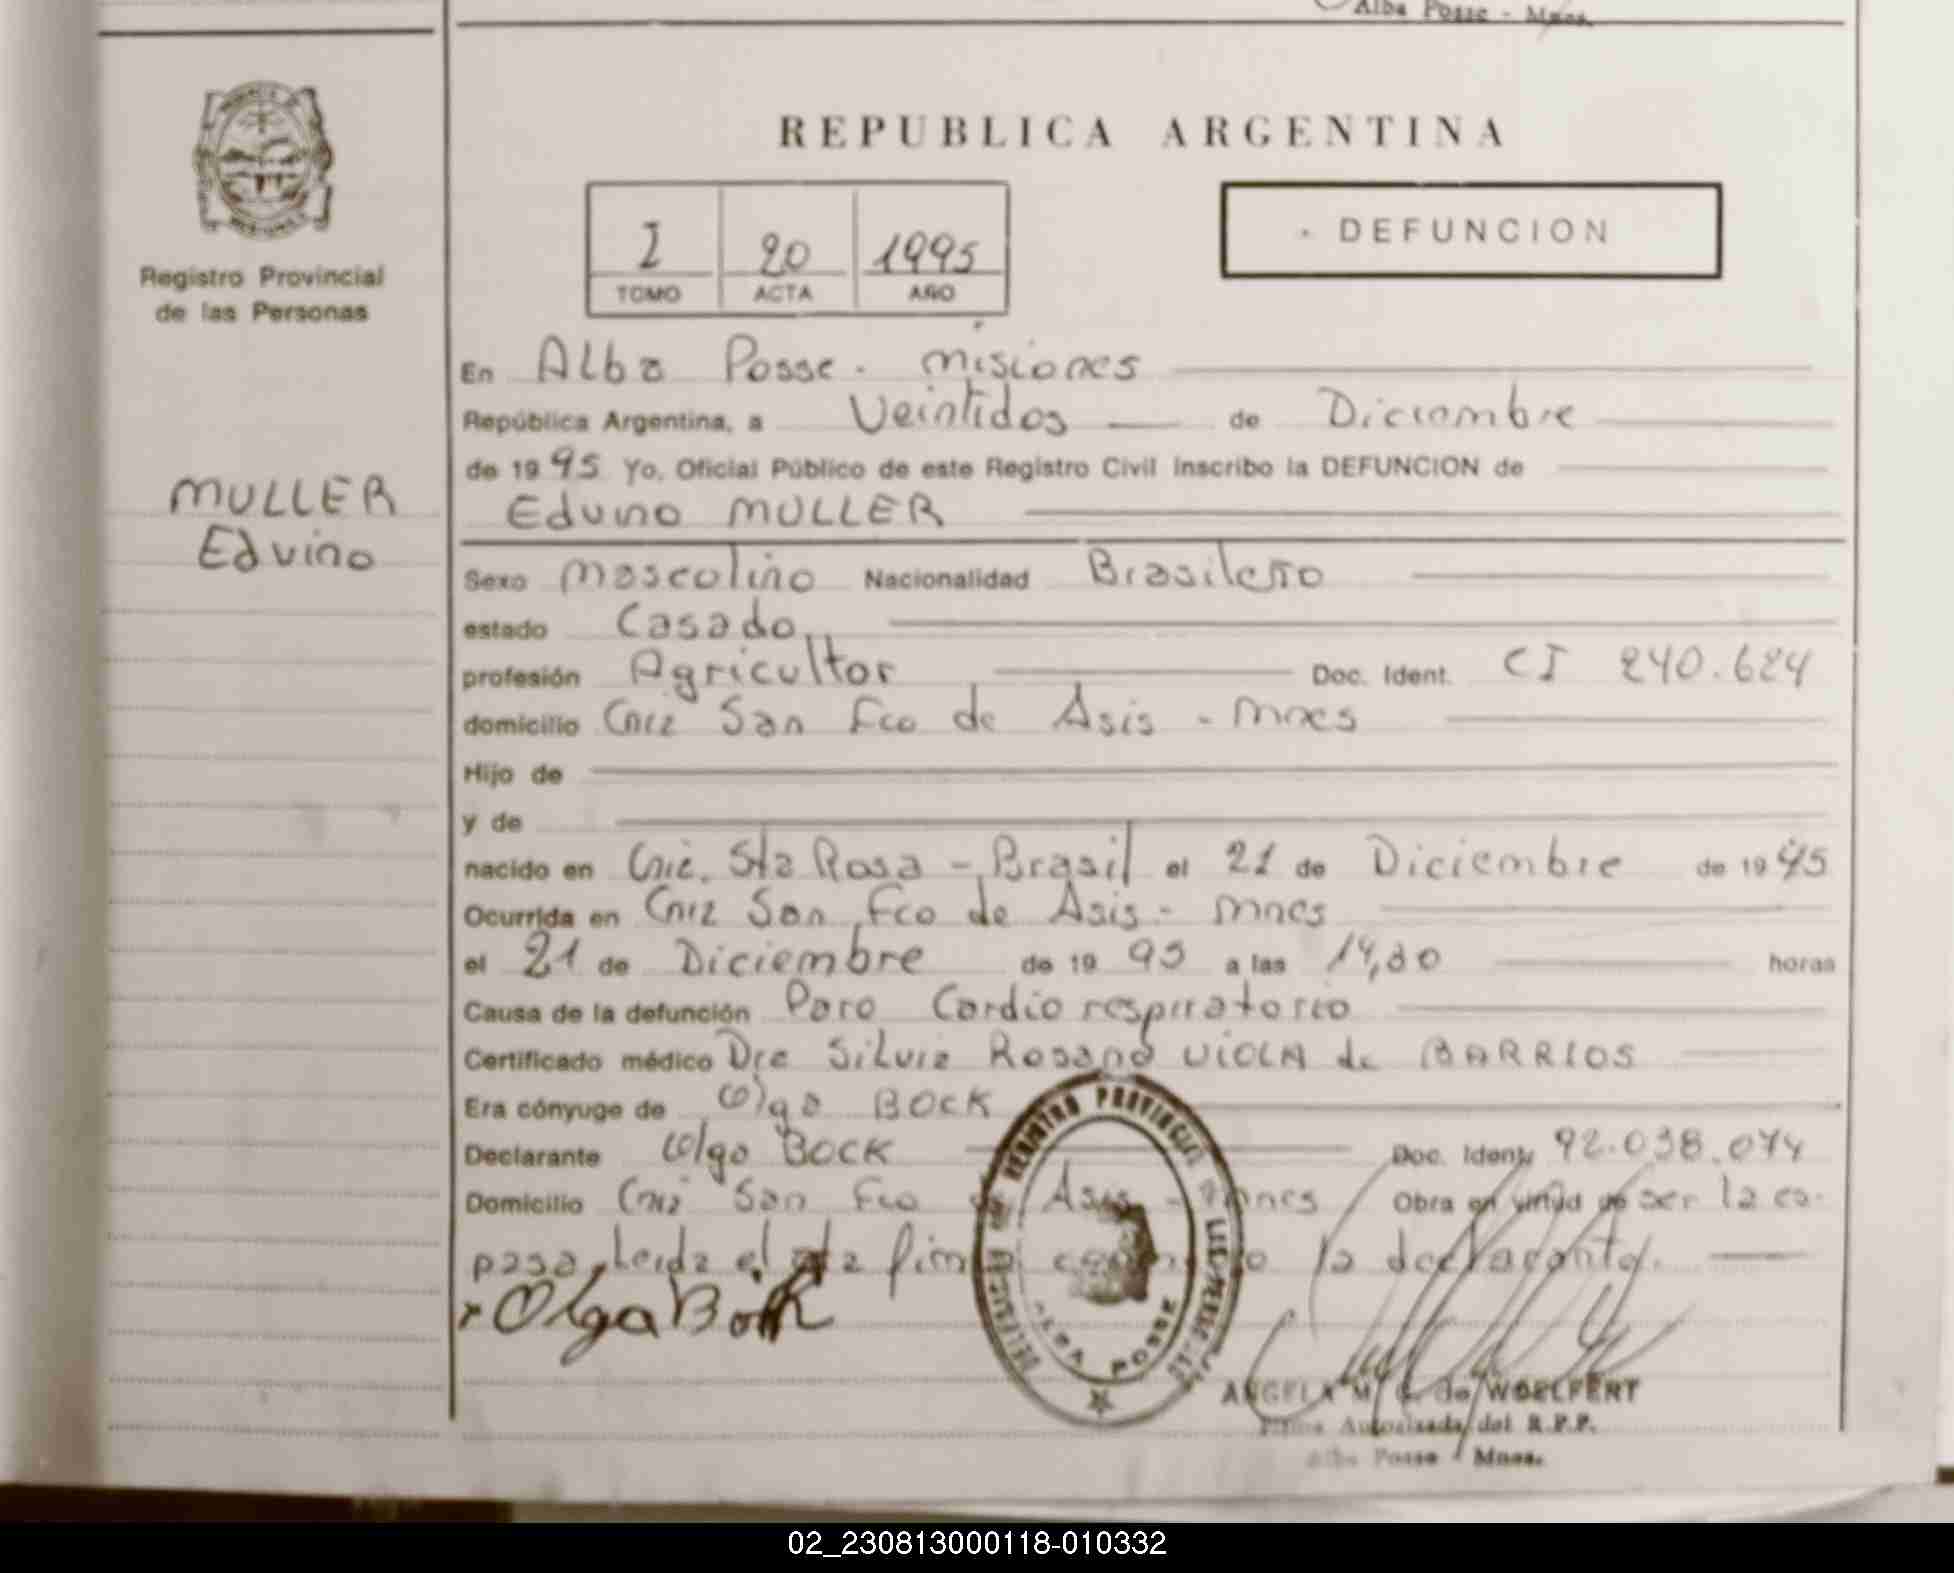 Alba Posse - Mnes.
REPUBLICA ARGENTINA
I 20 1995
TOMO ACTA AÑO
DEFUNCION
Registro Provincial
de las Personas
MULLER
Edvino
En Alba Posse. Misiones
República Argentina, a Veintidos de Diciembre
de 1995 Yo, Oficial Público de este Registro Civil inscribo la DEFUNCION de
Edvino MULLER
Sexo Masculino Nacionalidad Brasileño
estado Casado
profesión Agricultor Doc. Ident. CI 240.624
domicilio Cnia San Fco de Asis - Mnes
Hijo de
y de
nacido en Cnia. Sta Rosa - Brasil el 21 de Diciembre de 1945
Ocurrida en Cnia San Fco de Asis - Mnes
el 21 de Diciembre de 1995 a las 14,30 horas
Causa de la defunción Paro Cardio respiratorio
Certificado médico Dra Silvia Rosana VIOLA de BARRIOS
Era cónyuge de Olga BOCK
Declarante Olga BOCK Doc. Ident. 92.038.074
Domicilio Cnia San Fco de Asis - Mnes Obra en virtud de ser la es-
posa Leida el acta firma la declarante.
Olga Bock
REGISTRO PROVINCIAL
ALBA POSSE
ANGELA M. de WOELFERT
Firma Autorizada del R.P.P.
Alba Posse - Mnes.
02_230813000118-010332